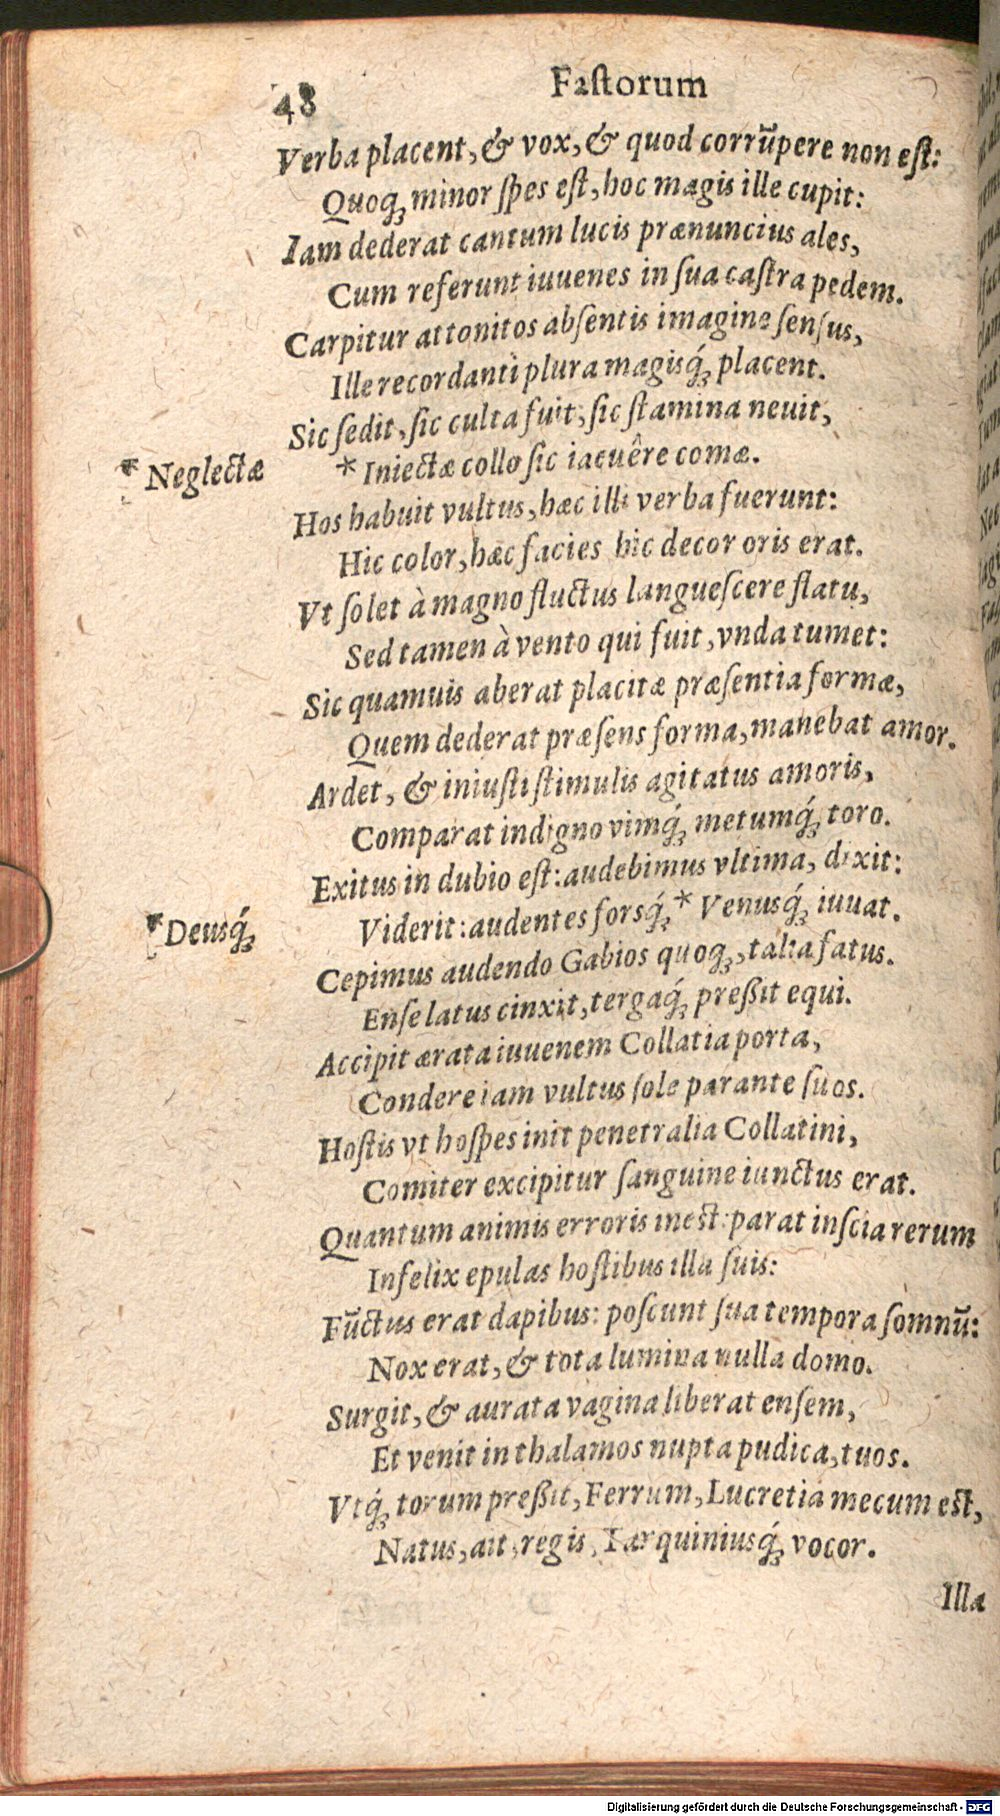 48 Fastorum
Verba placent, & vox, & quod corrũpere non est:
Quoq; minor spes est, hoc magis ille cupit:
Iam dederat cantum lucis prænuncius ales,
Cum referunt iuuenes in sua castra pedem.
Carpitur attonitos absentis imagine sensus,
Ille recordanti plura magisq́; placent.
Sic sedit, sic culta fuit, sic stamina neuit,
* Neglectæ
* Iniectæ collo sic iacuêre comæ.
Hos habuit vultus, hæc illi verba fuerunt:
Hic color, hæc facies hic decor oris erat.
Vt solet à magno fluctus languescere flatu,
Sed tamen à vento qui fuit, vnda tumet:
Sic quamuis aberat placitæ præsentia formæ,
Quem dederat præsens forma, manebat amor.
Ardet, & iniusti stimulis agitatus amoris,
Comparat indigno vimq́; metumq́; toro.
Exitus in dubio est: audebimus vltima, dixit:
* Deusq́;
Viderit: audentes forsq́; * Venusq́; iuuat.
Cepimus audendo Gabios quoq;, talia fatus.
Ense latus cinxit, tergaq́; preßit equi.
Accipit ærata iuuenem Collatia porta,
Condere iam vultus sole parante suos.
Hostis vt hospes init penetralia Collatini,
Comiter excipitur sanguine iunctus erat.
Quantum animis erroris inest: parat inscia rerum
Infelix epulas hostibus illa suis:
Fũctus erat dapibus: poscunt sua tempora somnũ:
Nox erat, & tota lumina nulla domo.
Surgit, & aurata vagina liberat ensem,
Et venit in thalamos nupta pudica, tuos.
Vtq́; torum preßit, Ferrum, Lucretia mecum est,
Natus, ait, regis, Tarquiniusq́; vocor.
Illa
Digitalisierung gefördert durch die Deutsche Forschungsgemeinschaft - DFG